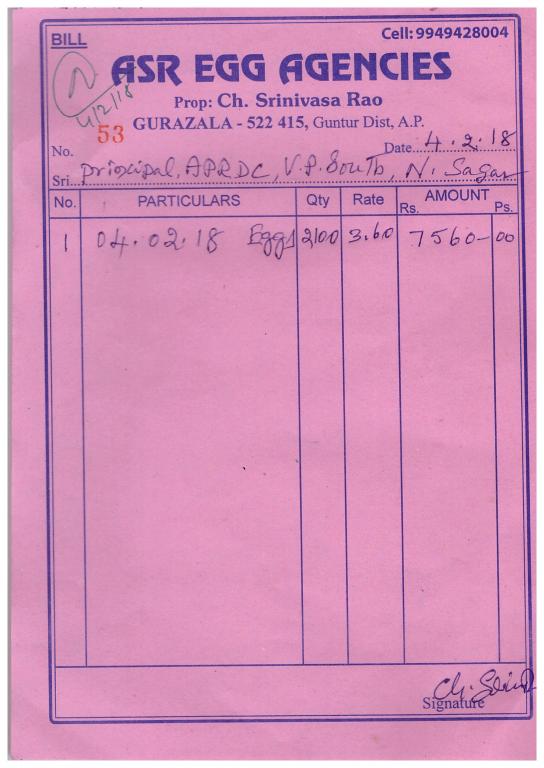 BILL
Cell: 9949428004
N
4/2/18
ASR EGG AGENCIES
Prop: Ch. Srinivasa Rao
GURAZALA - 522 415, Guntur Dist, A.P.
No. 53
Date 4.2.18
Sri principal, APRDC, V.P. South, N. Sagar
No. PARTICULARS Qty Rate AMOUNT
Rs. Ps.
1 04.02.18 Eggs 2100 3.60 7560-00
Ch.
Signature